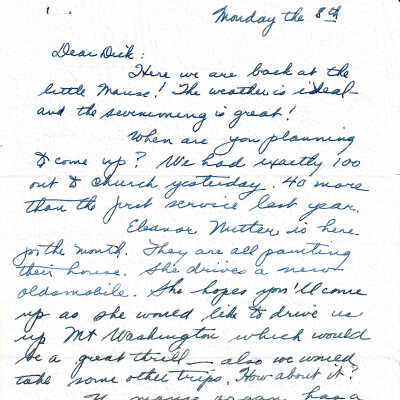 Monday the 8th
Dear Dick:
Here we are back at the
little Manse! The weather is ideal-
and the swimming is great!
When are you planning
to come up? We had exactly 100
out to church yesterday. 40 more
than the first service last year.
Eleanor Nutter is here
for the month. They are all painting
their house. She drives a new
oldsmobile. She hopes you'll come
up as she would like to drive us
up Mt Washington which would
be a great thrill - also we would
take some other trips. How about it?
manse organ has a